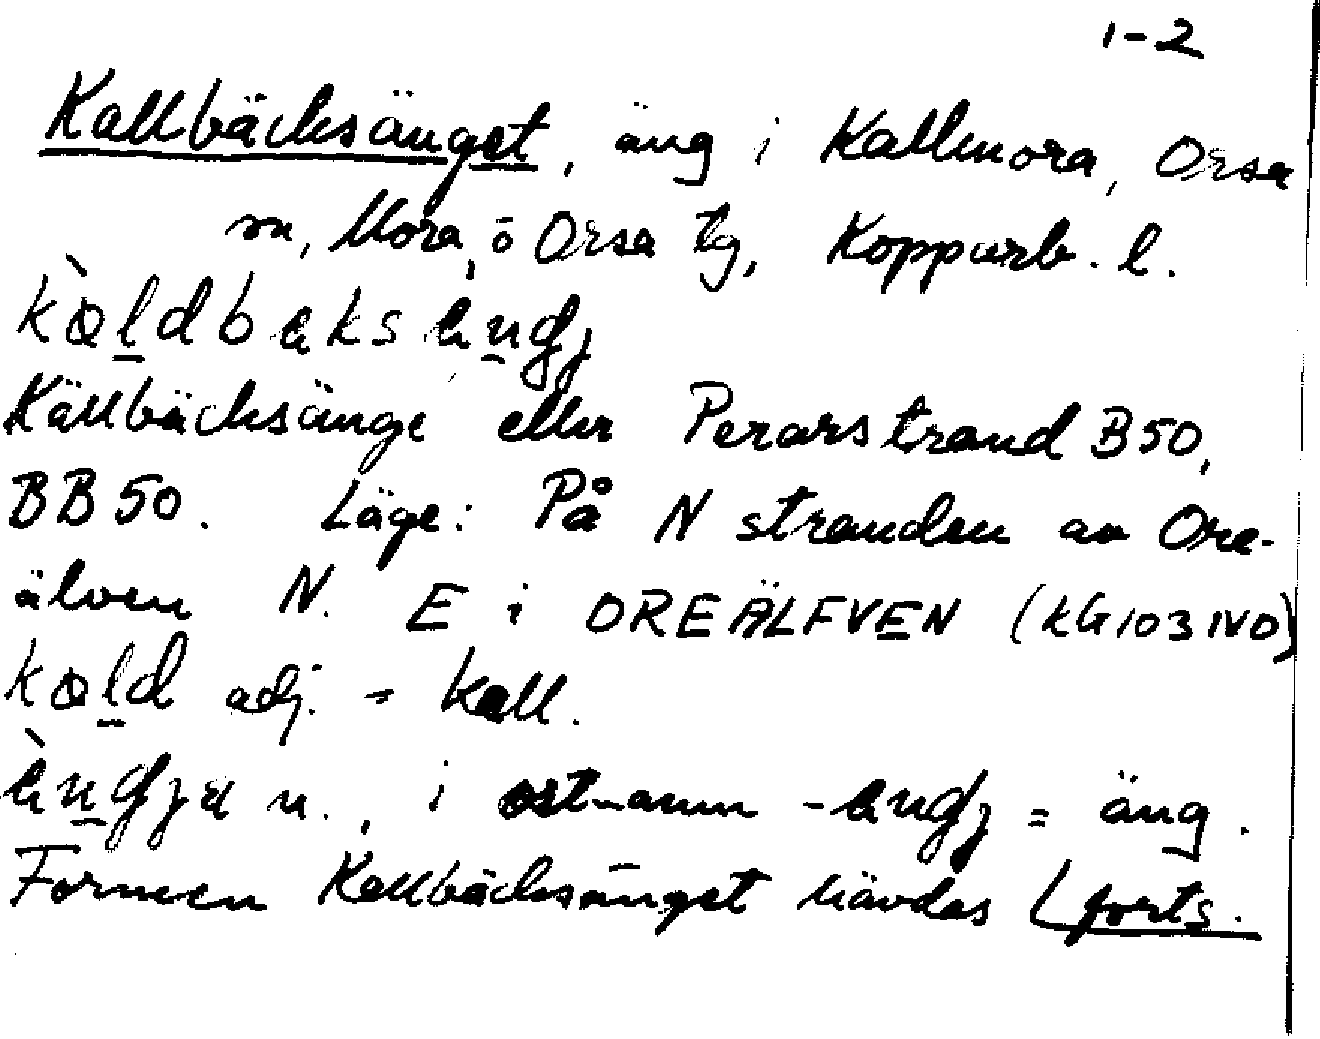 1-2
Kallbäcksänget, äng i Kallmora, Orsa
sn, Mora o Orsa tg, Kopparb. l.
kældbeks engj
Källbäcksänge eller Perarstrand B50,
BB50. Läge: På N stranden av Ore-
älven N. E i OREÄLFVEN (KG103 IVD)
kæld adj. = kall.
n., i ost-anm - = äng.
Formen Kallbäcksänget hävdas (forts.